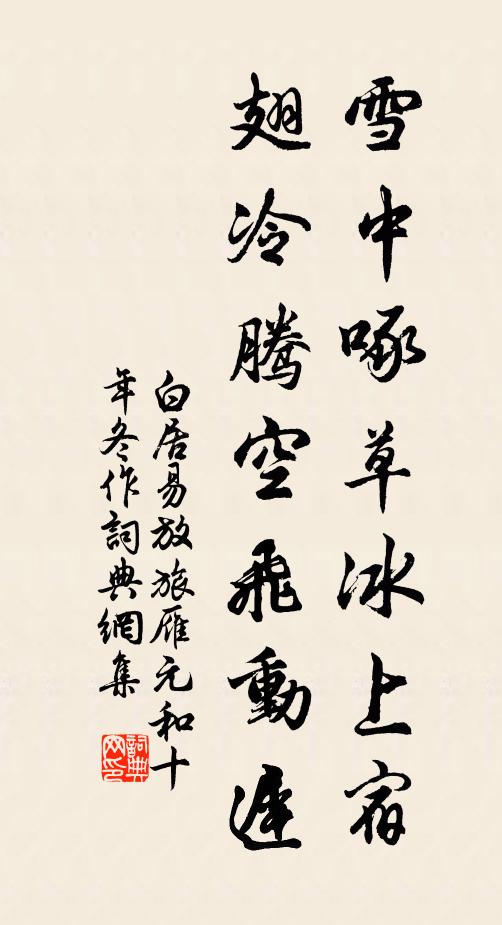 雪中啄草冰上宿
翅冷騰空飛動遲
白居易放旅雁元和十
年冬作詞典網集
詞典
网印